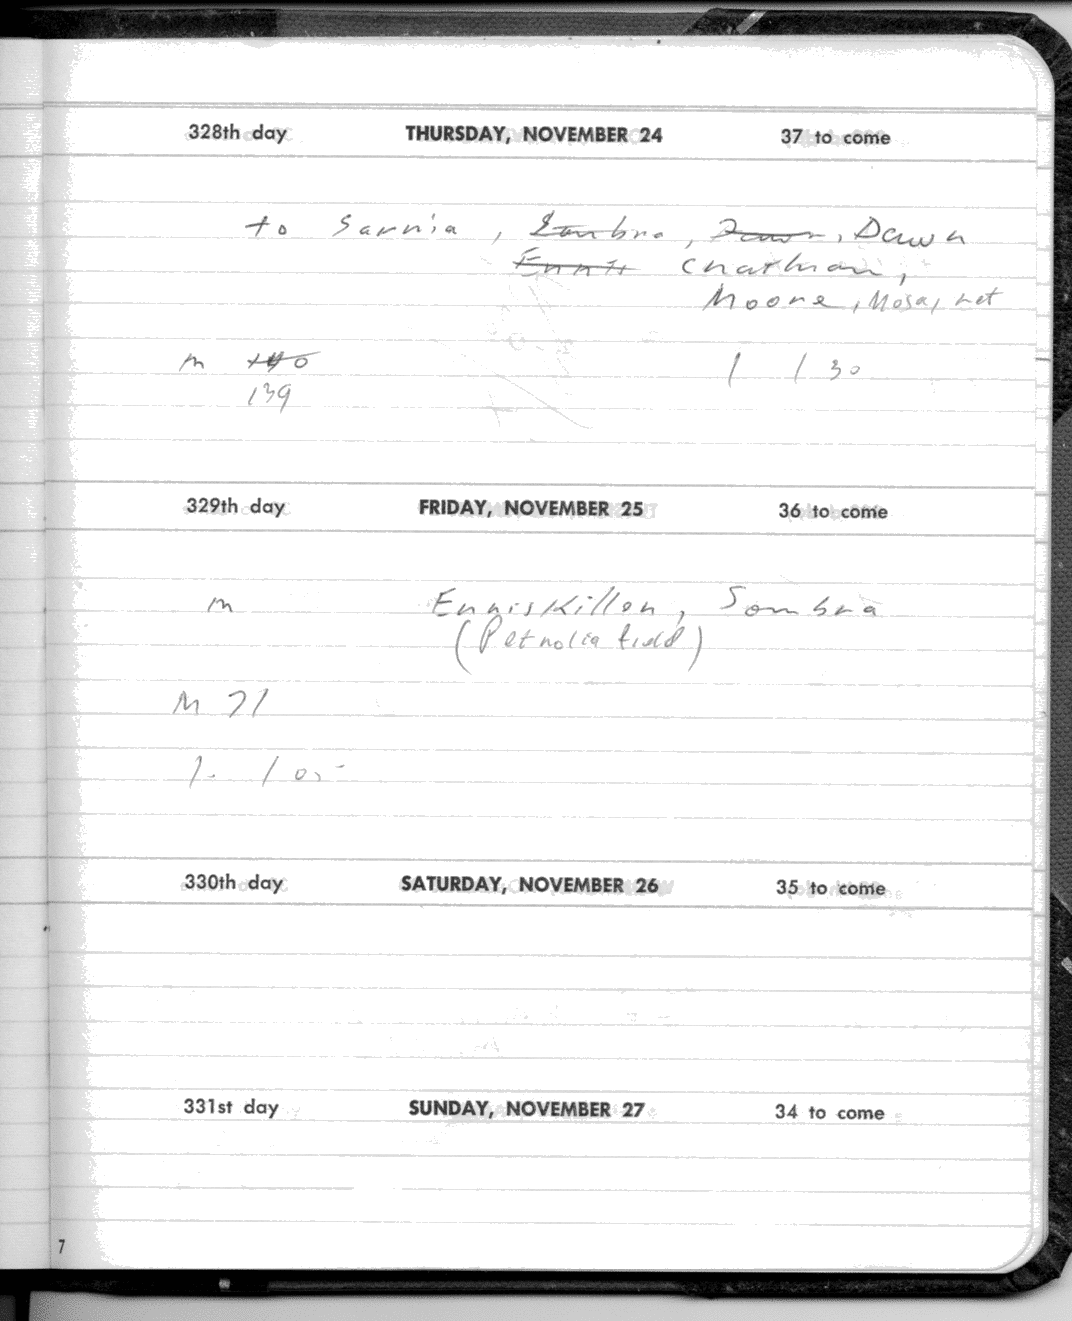 328th day THURSDAY, NOVEMBER 24 37 to come
to Sarnia, Sombra, Dawn, Dawn
Ennis Chatham,
Moore, Mosa, ret
m 140 1 130
139
329th day FRIDAY, NOVEMBER 25 36 to come
m Enniskillen, Sombra
(Petrolia field)
M 71
1. 10.-
330th day SATURDAY, NOVEMBER 26 35 to come
331st day SUNDAY, NOVEMBER 27 34 to come
7